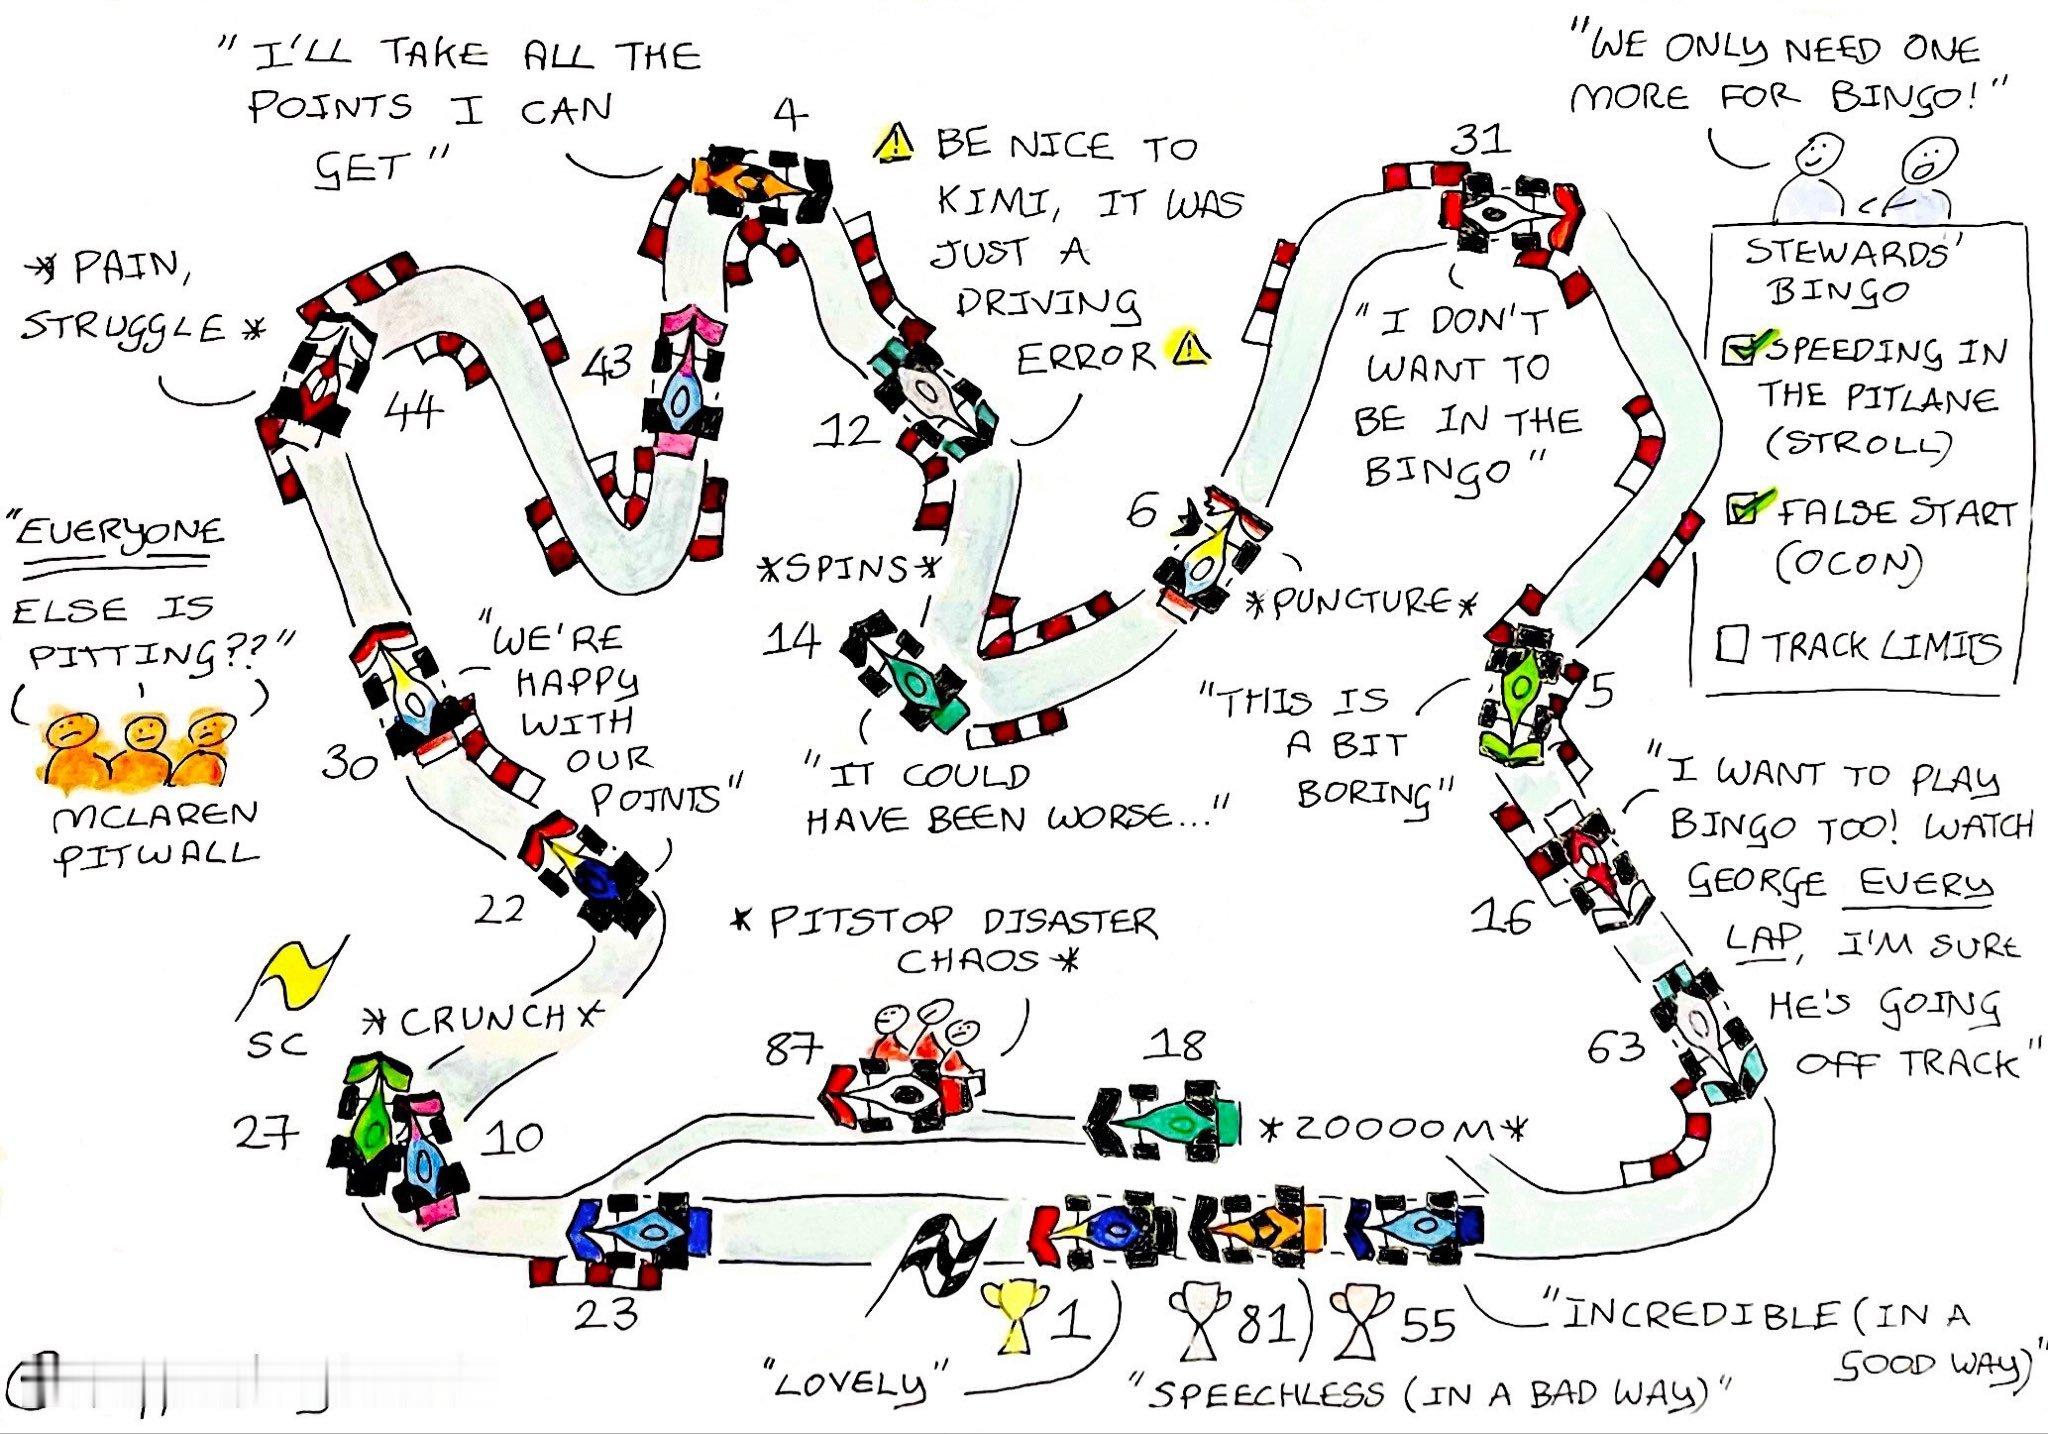 "I'LL TAKE ALL THE
POINTS I CAN
GET"
4
⚠ BE NICE TO
KIMI, IT WAS
JUST A
DRIVING
ERROR ⚠
31
"WE ONLY NEED ONE
MORE FOR BINGO!"
STEWARDS'
BINGO
SPEEDING IN
THE PITLANE
(STROLL)
FALSE START
(OCON)
TRACK LIMITS
*PAIN,
STRUGGLE*
44
43
12
"I DON'T
WANT TO
BE IN THE
BINGO"
6
*PUNCTURE*
"EVERYONE
ELSE IS
PITTING??"
MCLAREN
PITWALL
*SPINS*
14
"IT COULD
HAVE BEEN WORSE..."
"THIS IS
A BIT
BORING"
5
30
"WE'RE
HAPPY
WITH
OUR
POINTS"
22
"I WANT TO PLAY
BINGO TOO! WATCH
GEORGE EVERY
LAP, I'M SURE
HE'S GOING
OFF TRACK"
16
63
*PITSTOP DISASTER
CHAOS*
SC
*CRUNCH*
87
18
27
10
*20000M*
23
1
81
55
"LOVELY"
"SPEECHLESS (IN A BAD WAY)"
"INCREDIBLE (IN A
GOOD WAY)"